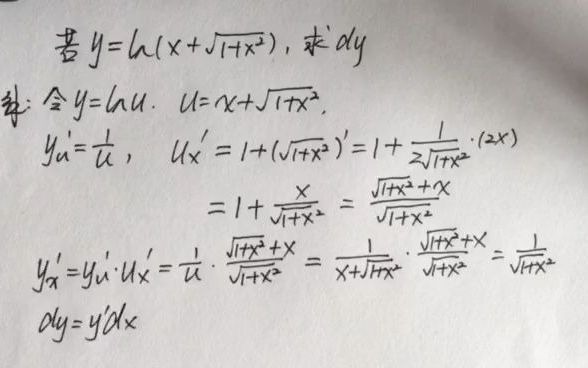 若y=ln(x+√(1+x²)), 求dy
解: 令y=lnu. u=x+√(1+x²).
yu'=1/u, ux'=1+(√(1+x²))'=1+1/(2√(1+x²))·(2x)
=1+x/√(1+x²)=(√(1+x²)+x)/√(1+x²)
yx'=yu'·ux'=1/u·(√(1+x²)+x)/√(1+x²)=1/(x+√(1+x²))·(√(1+x²)+x)/√(1+x²)=1/√(1+x²)
dy=y'dx